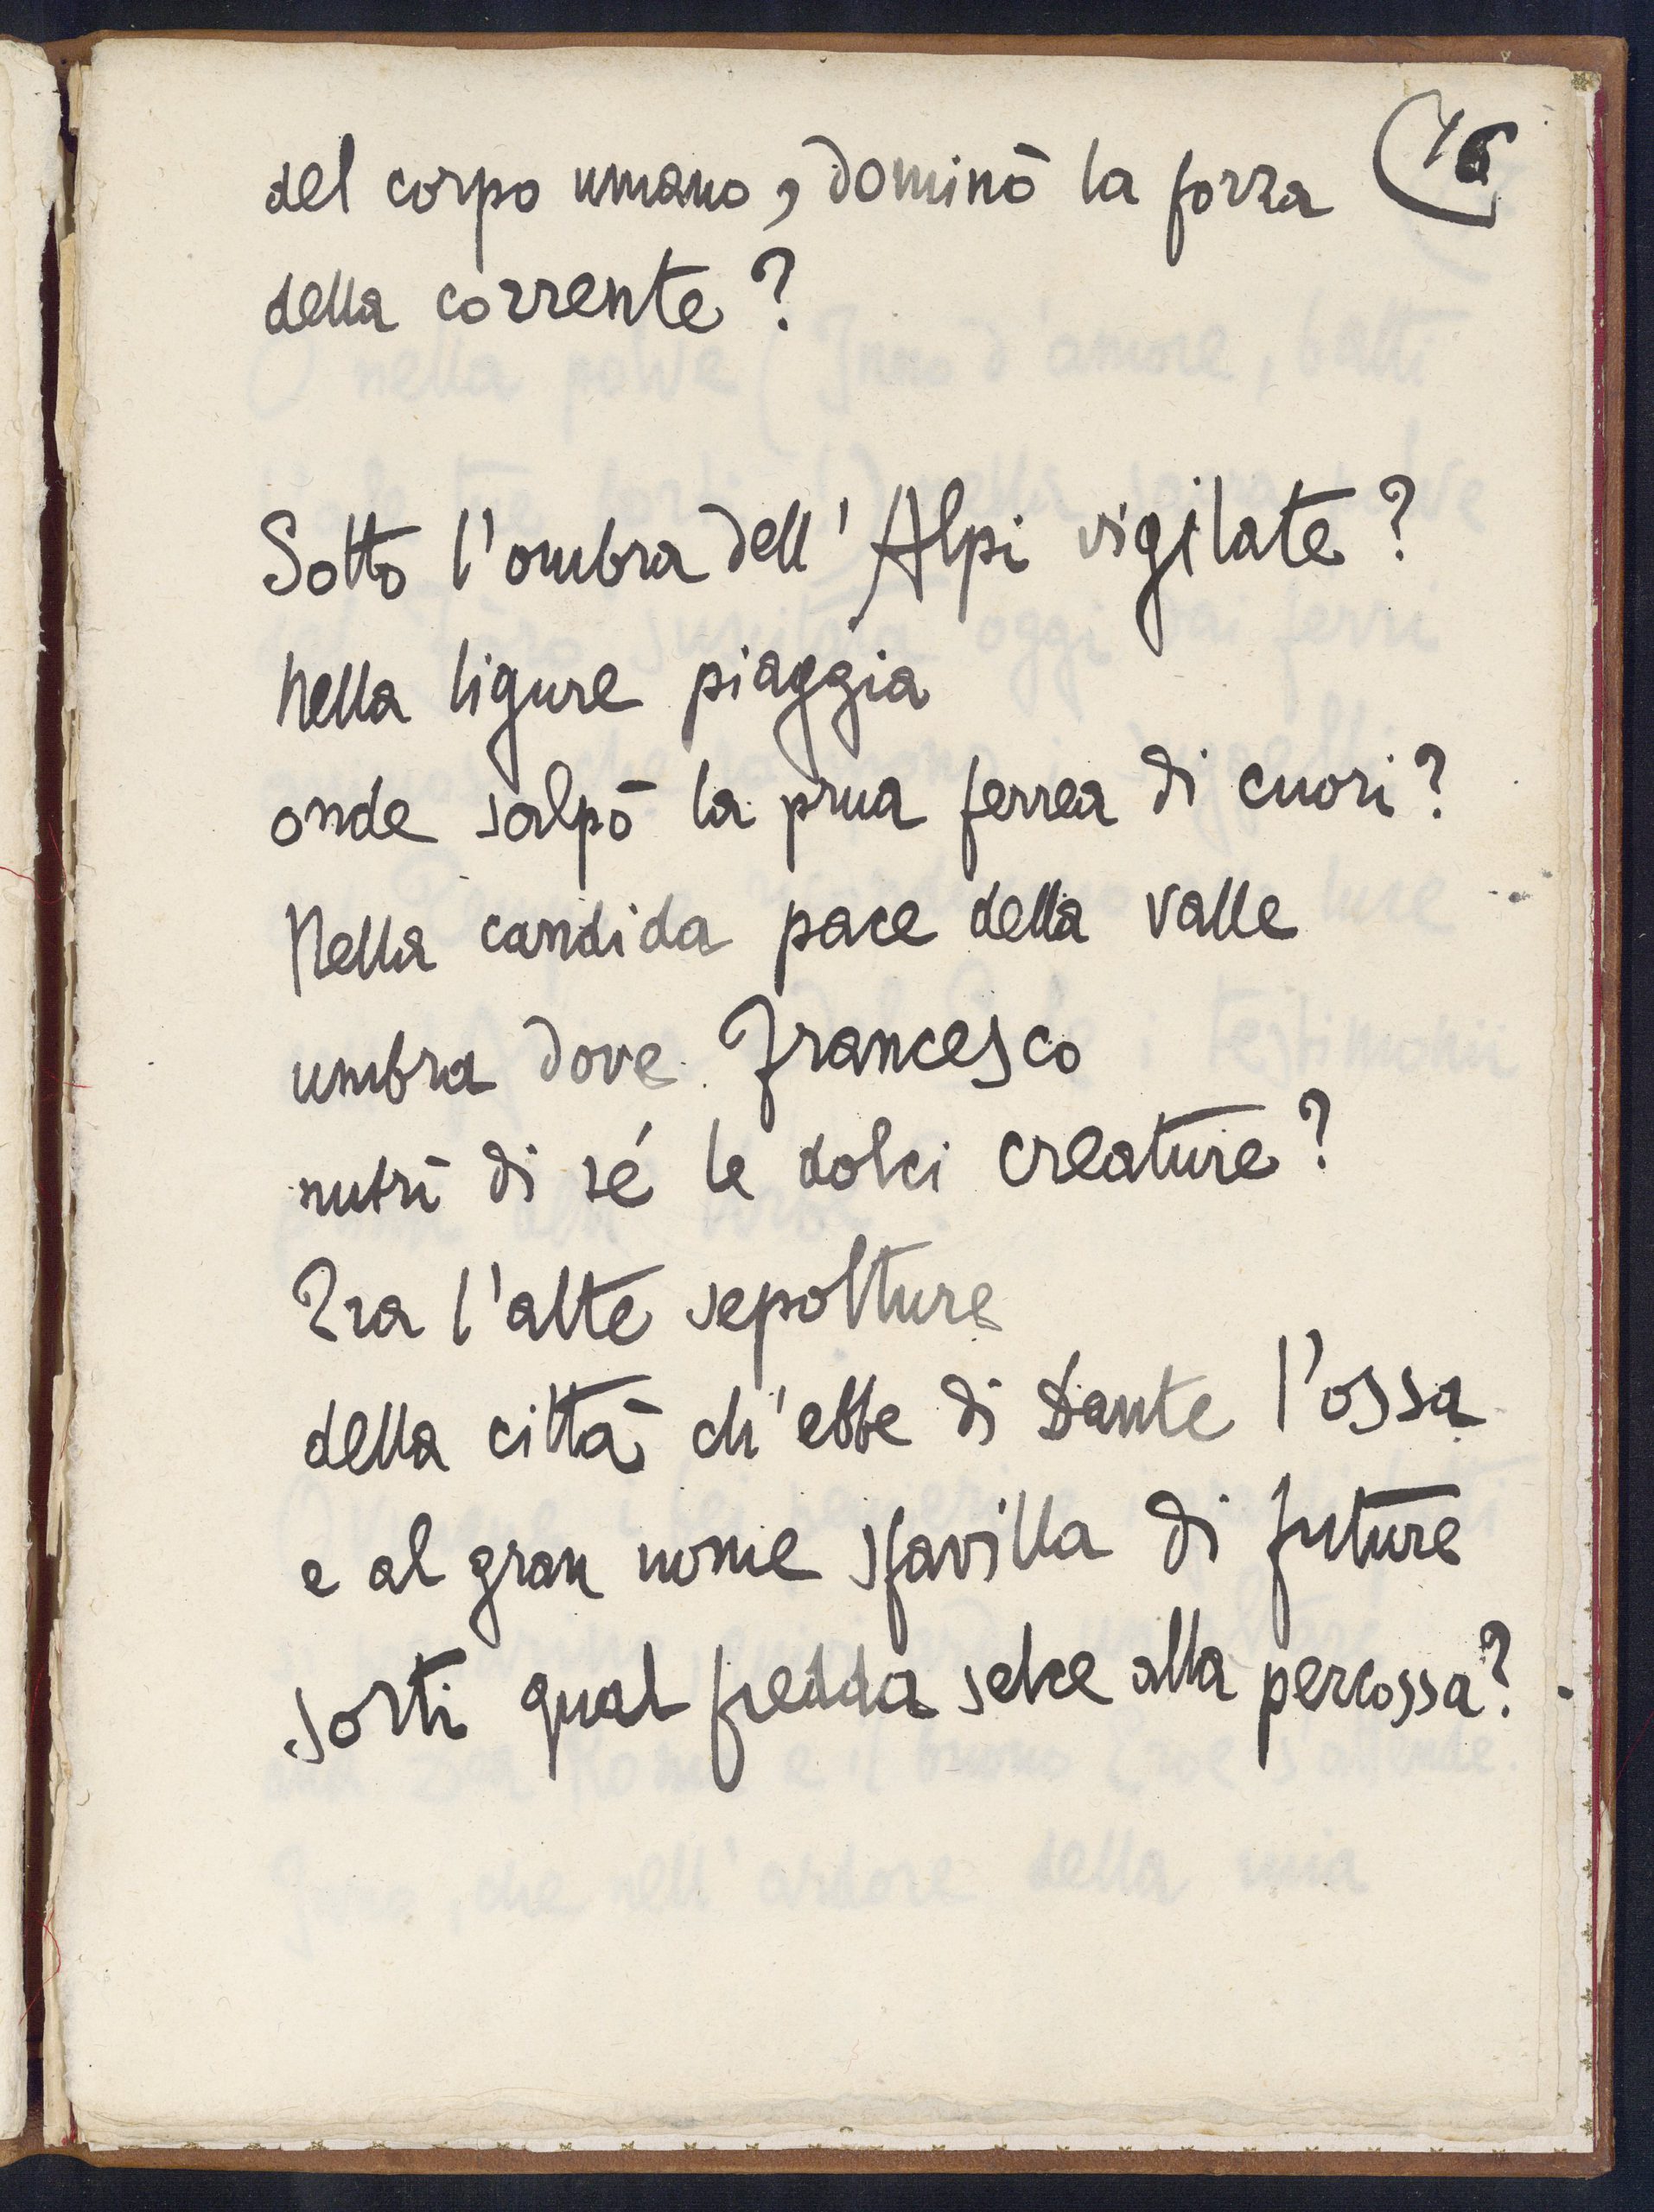 16
del corpo umano, dominò la forza
della corrente?
Sotto l'ombra dell'Alpi vigilate?
Nella ligure piaggia
onde salpò la prua ferrea di cuori?
Nella candida pace della valle
umbra dove Francesco
nutrì di sé le dolci creature?
Tra l'alte sepolture
della città ch'ebbe di Dante l'ossa
e al gran nome sfavilla di future
sorti qual fredda selce alla percossa?